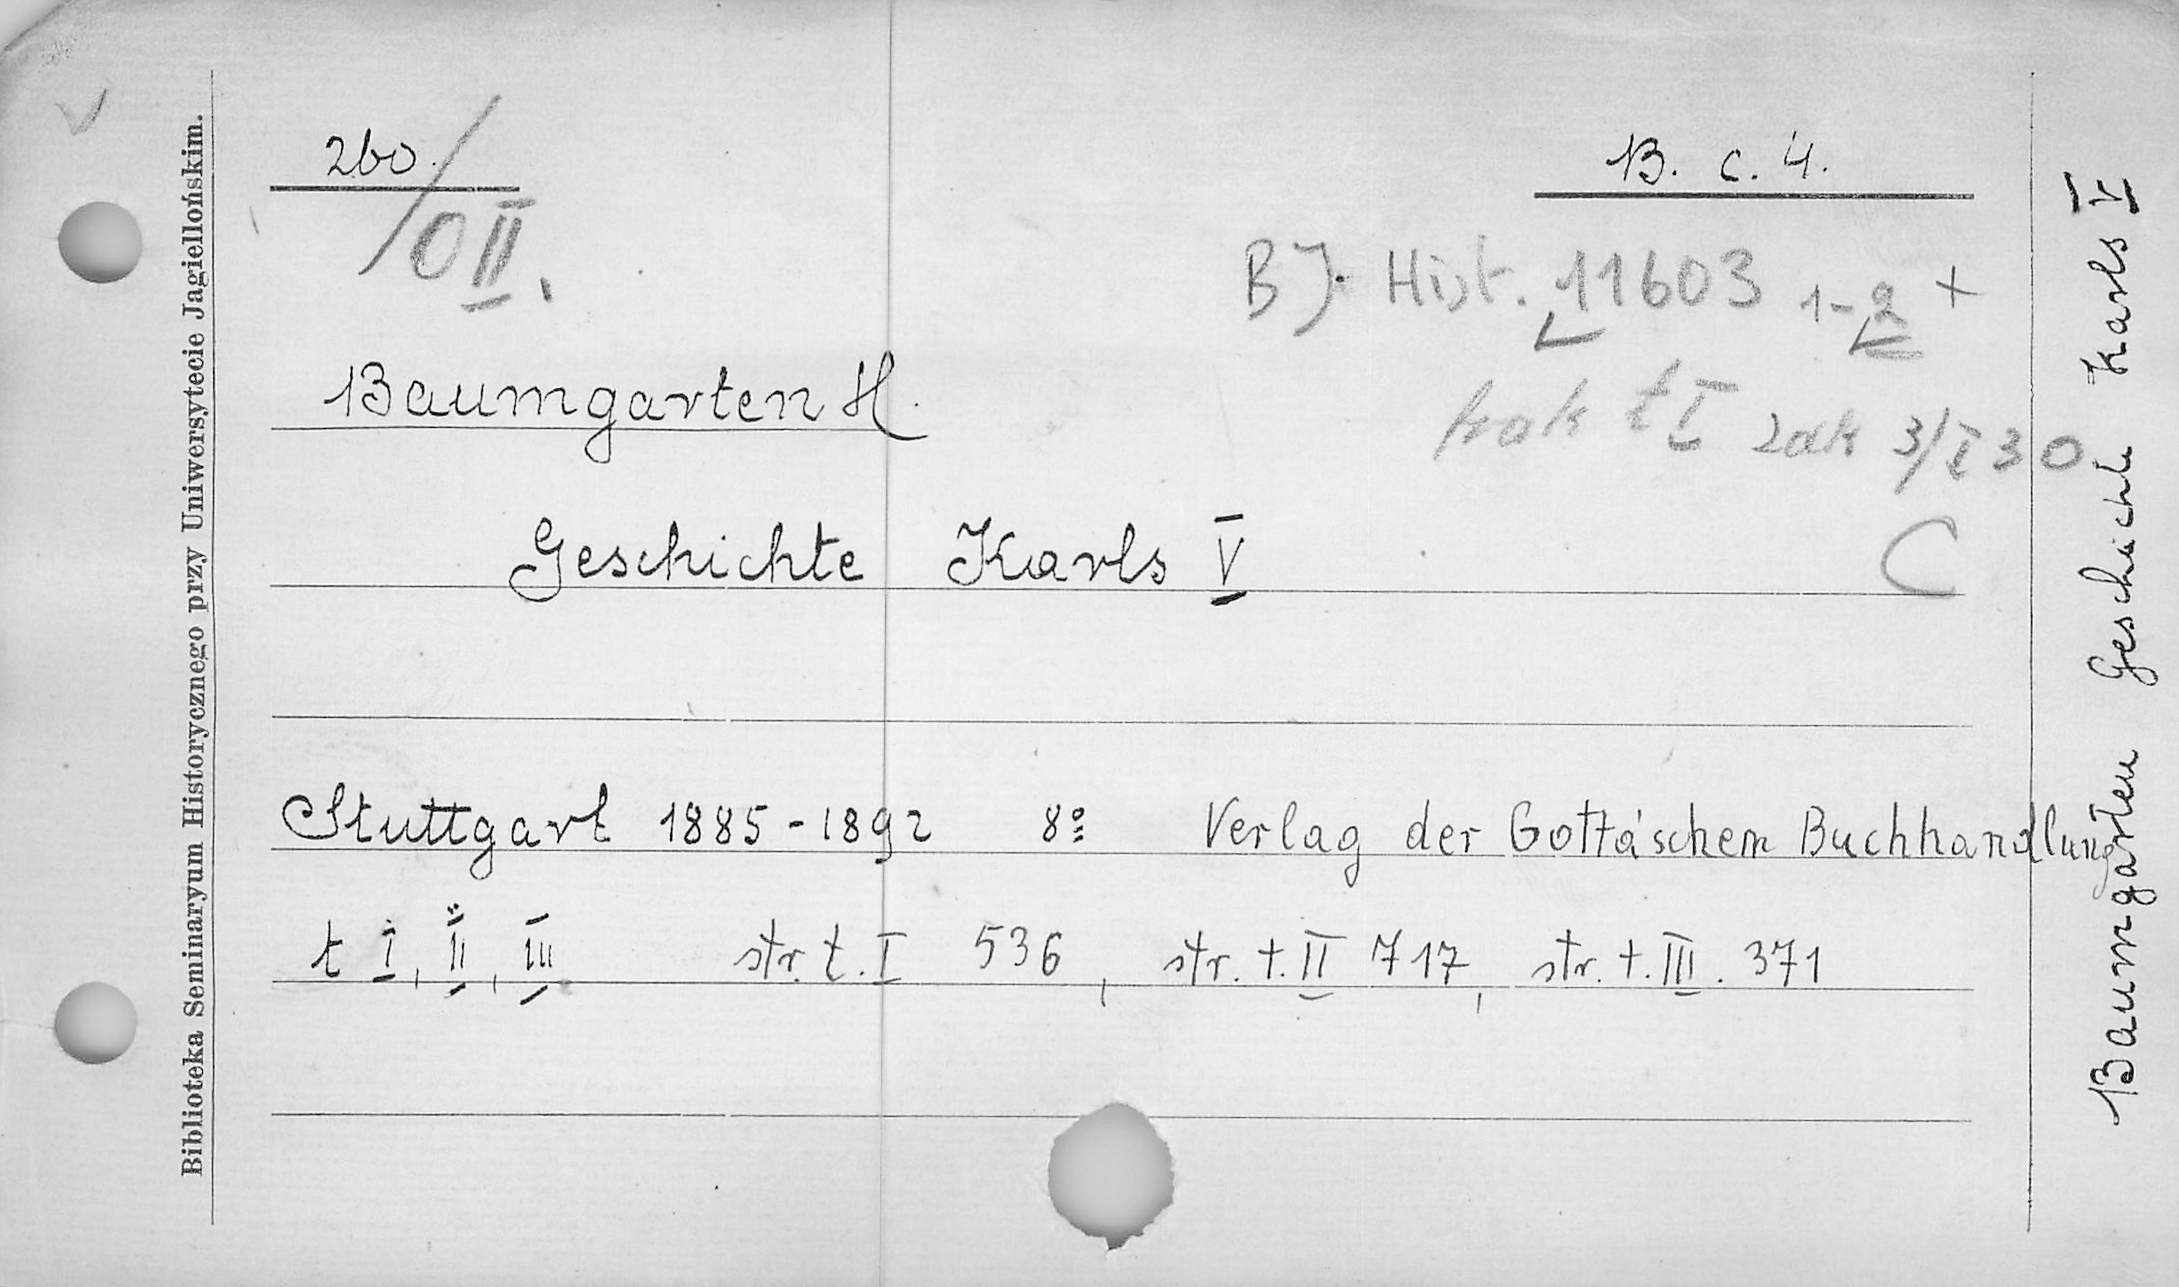 Biblioteka Seminaryum Historycznego przy Uniwersytecie Jagiellońskim.
260.
/ 0 II.
B. c. 4.
BJ. Hist. 11603 1-2 +
brak t I zak 3/I 30
C
Baumgarten H.
Geschichte Karls V
Stuttgart 1885-1892 8º Verlag der Gotta'schen Buchhandlung
t I, II, III str. t. I 536, str. t. II 717, str. t. III. 371
Baumgarten Geschichte Karls V